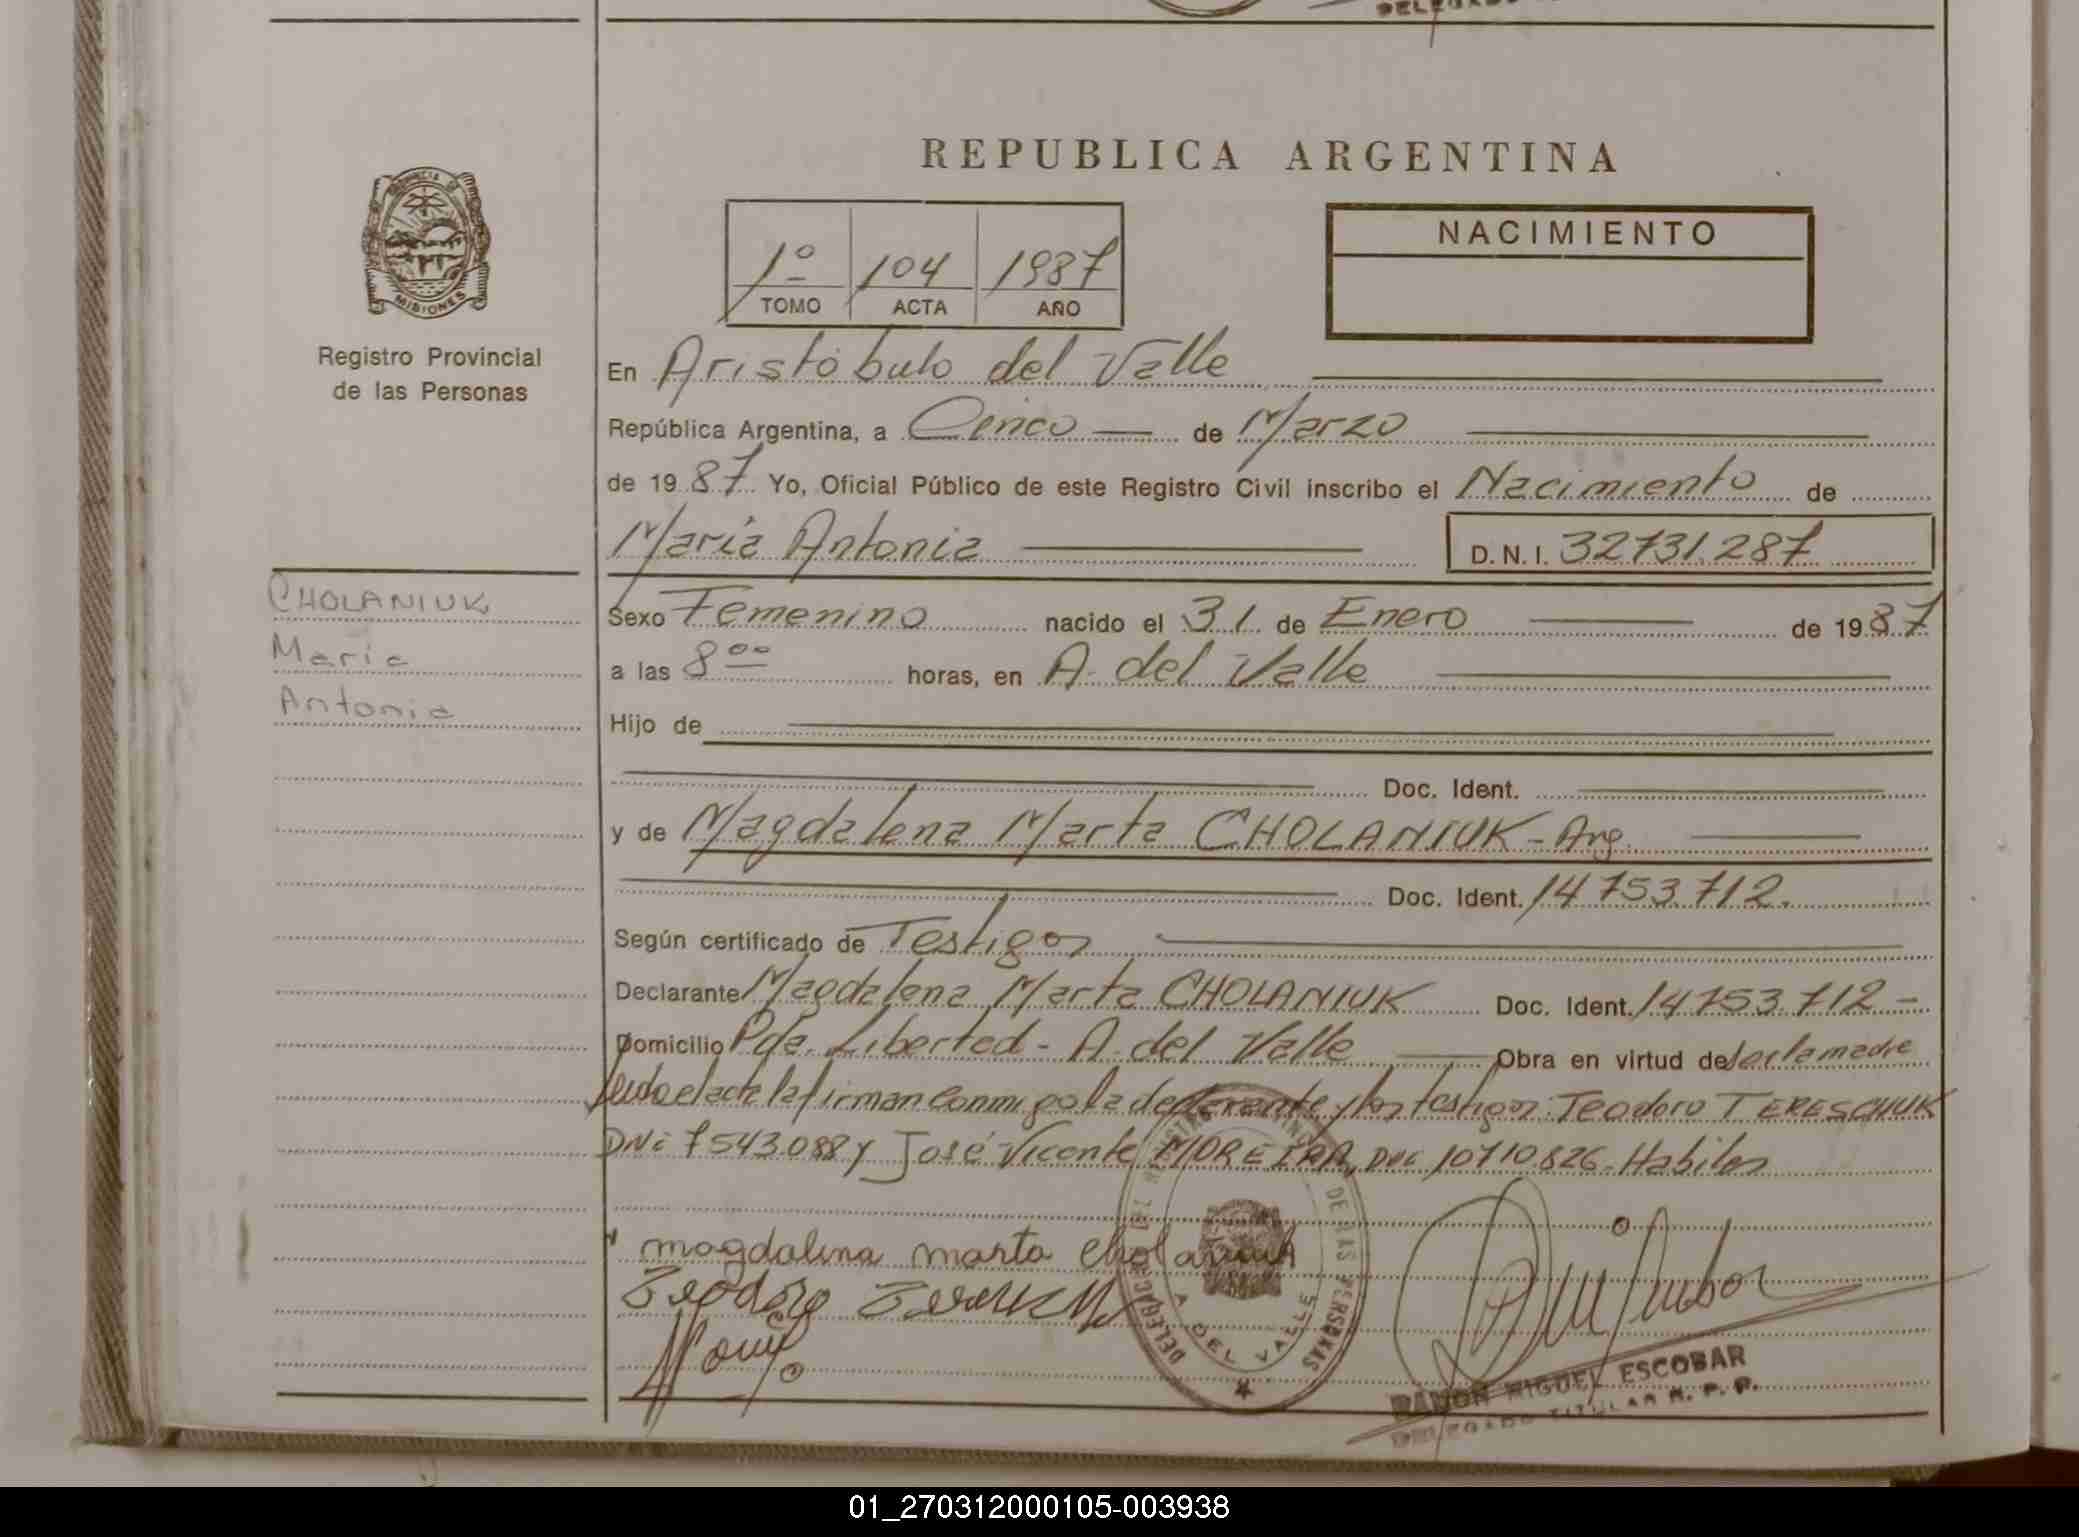 REPUBLICA ARGENTINA
PROVINCIA DE
MISIONES
Registro Provincial
de las Personas
1º 104 1987
TOMO ACTA AÑO
NACIMIENTO
En Aristóbulo del Valle
República Argentina, a Cinco de Marzo
de 1987 Yo, Oficial Público de este Registro Civil inscribo el Nacimiento de
María Antonia D.N.I. 32731.287
CHOLANIUK
María
Antonia
Sexo Femenino nacido el 31 de Enero de 1987
a las 8 00 horas, en A. del Valle
Hijo de
Doc. Ident.
y de Magdalena Marta CHOLANIUK - Arg.
Doc. Ident. 14753.712.
Según certificado de Testigos
Declarante Magdalena Marta CHOLANIUK Doc. Ident. 14753.712 -
Domicilio Pda. Libertad - A. del Valle Obra en virtud de ser la madre
Leida el acta la firman conmigo la declarante y los testigos: Teodoro TERESCHUK
DNI 7543.088 y José Vicente MOREIRA, Doc 10710.826. Habiles
magdalena marta cholaniuk
DELEGACION DEL REGISTRO PROVINCIAL DE LAS PERSONAS
A. DEL VALLE
RAMON MIGUEL ESCOBAR
DELEGADO TITULAR R. P. P.
01_270312000105-003938